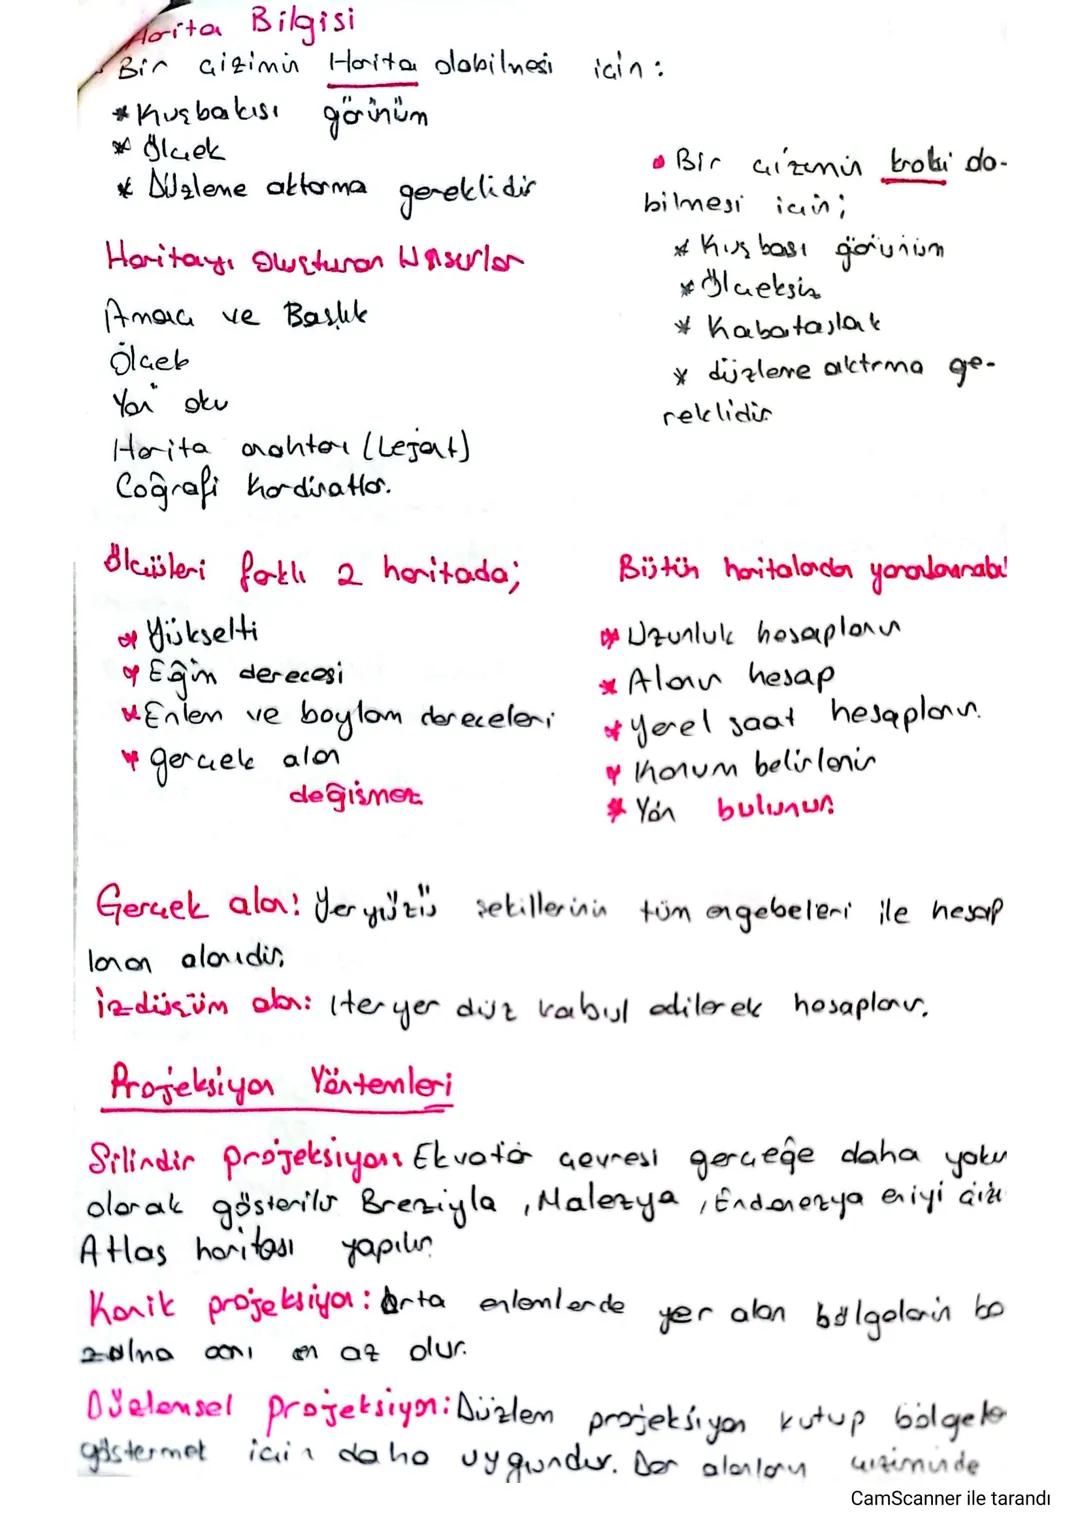 Harita Bilgisi
Bir çizimin Harita olabilmesi için:
* Kuşbakısı görünüm
* Ölçek
* Düzlene aktarma gereklidir
• Bir çizimin kroki olabilmesi için;
* Kuş bası görünüm
* Ölçeksiz
* Kabataslak
* düzlene aktrma ge-
reklidir
Haritayı Oluşturan Unsurlar
Amaç ve Başlık
Ölçek
Yön oku
Harita anahtarı (Lejant)
Coğrafi kordinatlar.
Ölçüleri farklı 2 haritada;
* Yükselti
* Eğim derecesi
* Enlem ve boylam dereceleri
* gerçek alan
değişmez
Bütün haritalardan yararlanırabi
* Uzunluk hesaplanır
* Alan hesap
* yerel saat hesaplanır.
* Konum belirlenir
* Yön bulunur.
Gerçek alan: Yeryüzü şekillerinin tüm engebeleri ile hesap
lanan alanıdır.
İzdüşüm alan: Her yer düz kabul edilerek hesaplanır.
Projeksiyon Yöntemleri
Silindir projeksiyon: Ekvator çevresi gerçeğe daha yakın
olarak gösterilir Breziyla, Malezya, Endonezya en iyi çizi
Atlas haritası yapılır.
Konik projeksiyon: Orta enlemlerde yer alan bölgelerin bo
zulma oranı en az olur.
Düzlemsel projeksiyon: Düzlem projeksiyon kutup bölgeler
göstermek için daha uygundur. Dar alanların çiziminde
CamScanner ile tarandı